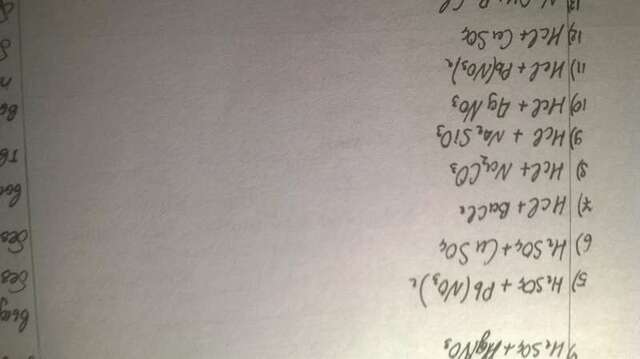 H₂SO₄ + AgNO₃
5) H₂SO₄ + Pb(NO₃)₂
6) H₂SO₄ + CuSO₄
7) HCl + BaCl₂
8) HCl + Na₂CO₃
9) HCl + Na₂SiO₃
10) HCl + AgNO₃
11) HCl + Pb(NO₃)₂
12) HCl + CuSO₄
13)